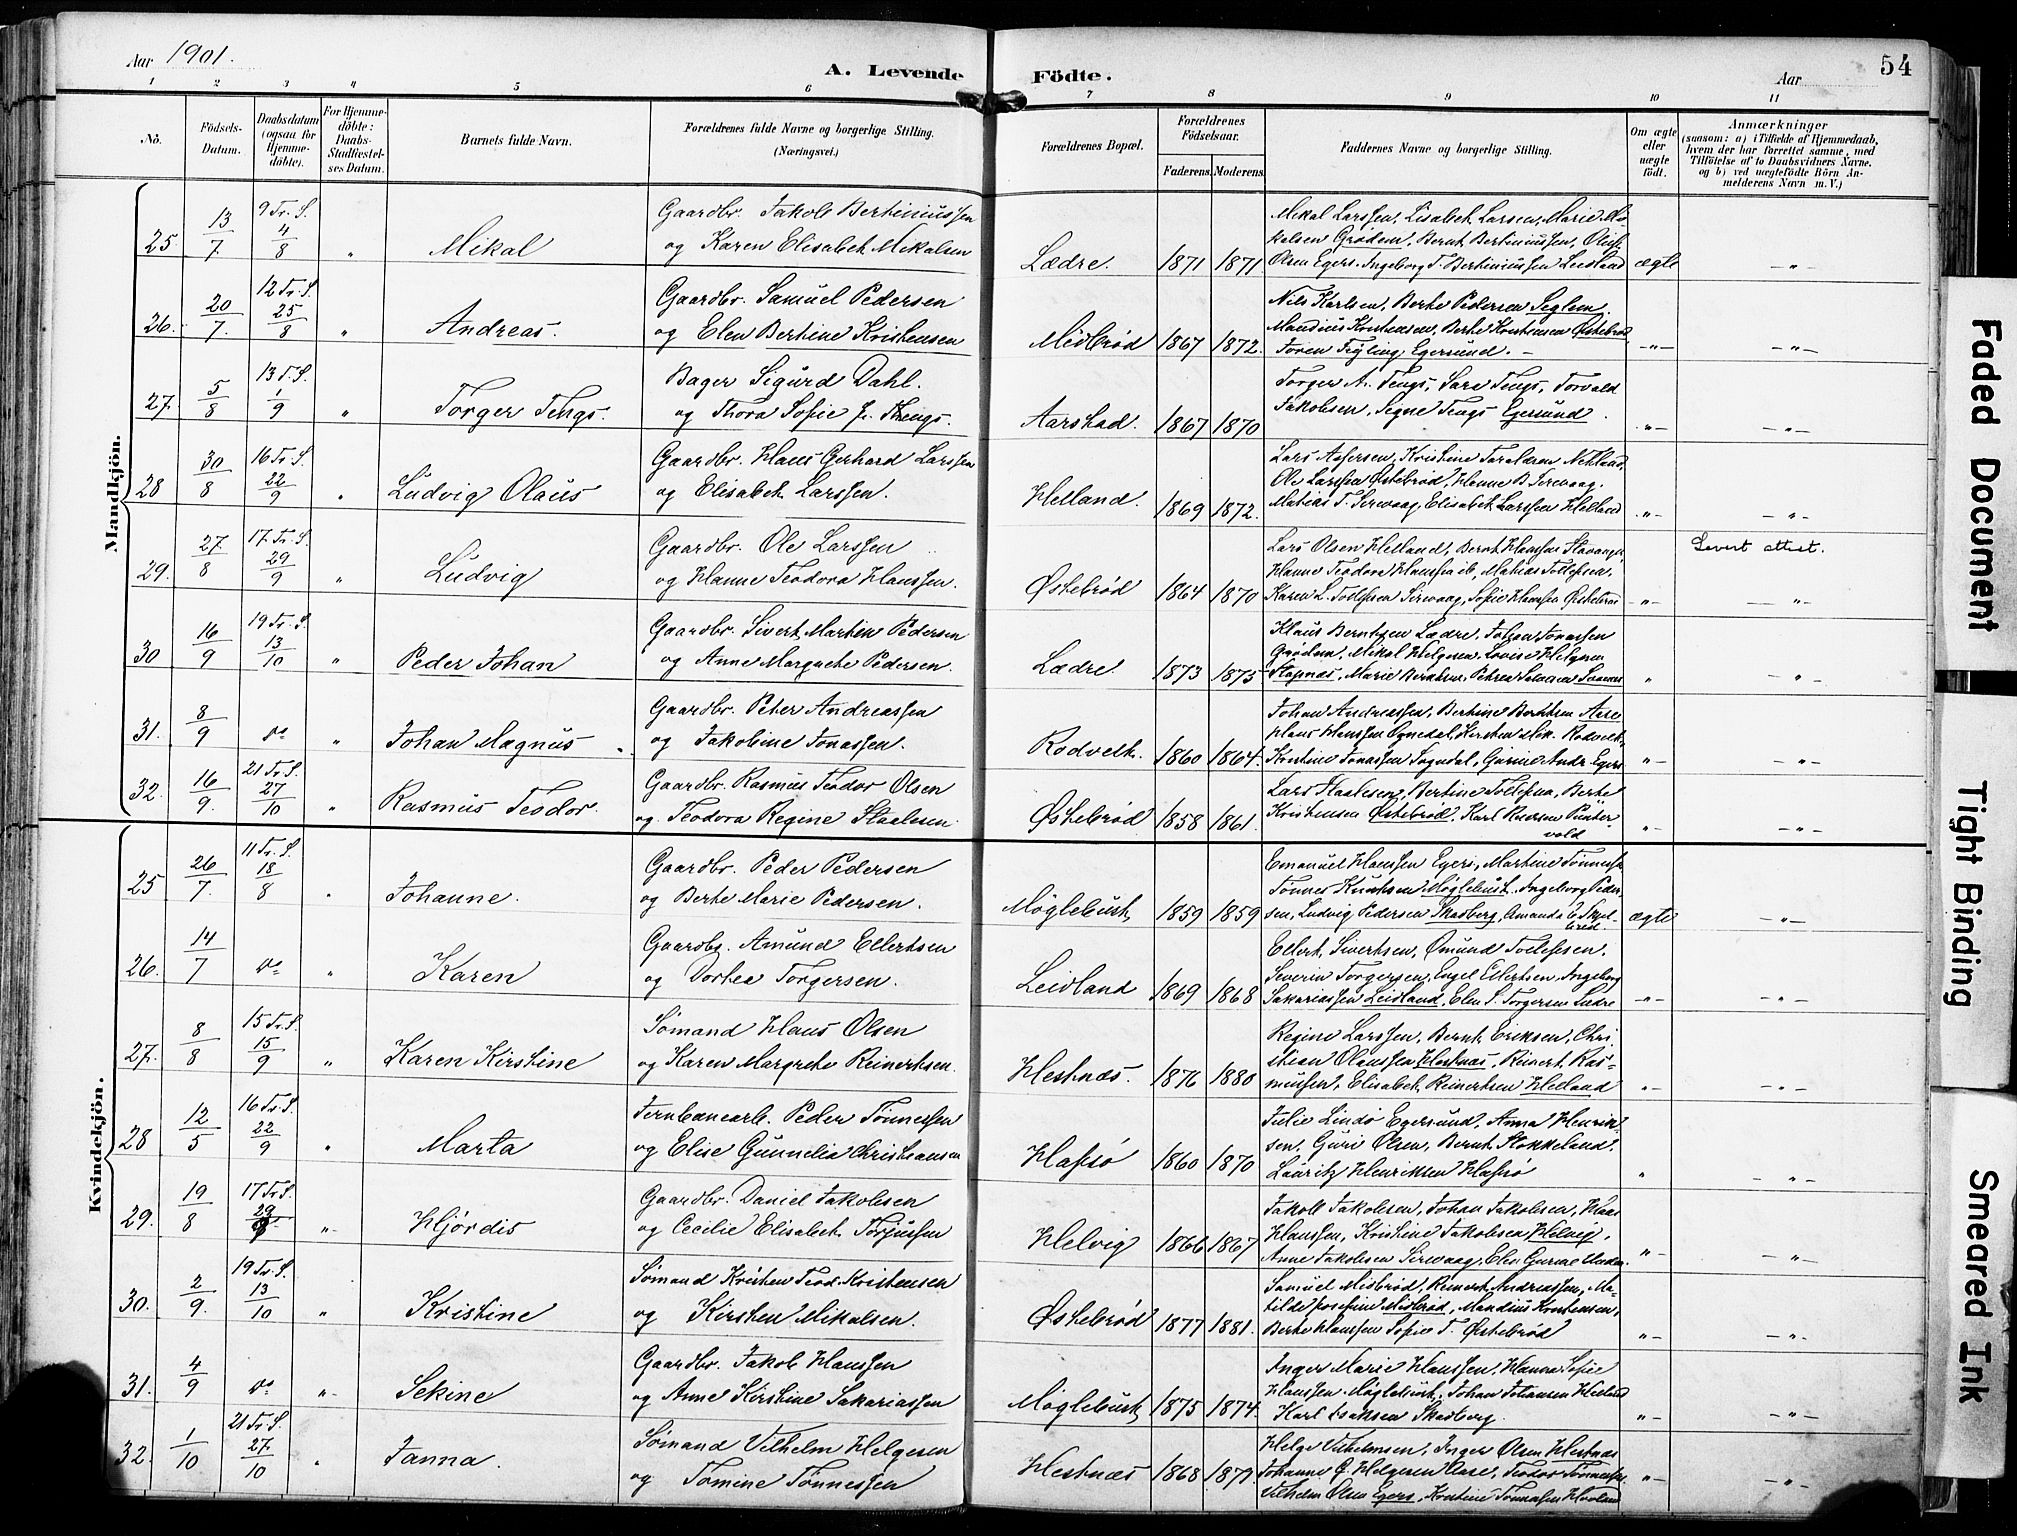 Aar 1901.
A. Levende Födte.
Aar
54
1 2 3 4 5 6 7 8 9 10 11
No.
Födsels-Datum.
Daabsdatum (ogsaa for Hjemme-döbte).
For Hjemme-döbte: Daabs-Stadfæstel-ses Datum.
Barnets fulde Navn.
Forældrenes fulde Navne og borgerlige Stilling.
(Næringsvei.)
Forældrenes Bopæl.
Forældrenes Födselsaar.
Faderens. Moderens.
Faddernes Navne og borgerlige Stilling.
Om ægte eller uægte födt.
Anmærkninger
(saasom: a) i Tilfælde af Hjemmedaab, hvem der har forrettet samme, med Tilföielse af to Daabsvidners Navne, og b) ved uægtefödte Börn An-melderens Navn m. V.)
Mandkjön.
25. 13/7 9 Tr. S. 4/8 " Mikal
Gaardbr. Jakob Bertiniussen
og Karen Elisabet Mikalsen
Lædre. 1871 1871
Mikal Larssen, Lisabet Larsen, Marie Mi-
kalsen Grødem, Bernt Bertiniussen, Oluf
Olsen Egers. Ingeborg T. Bertiniussen Leidland
ægte — " —
26. 20/7. 12 Tr. S. 25/8 " Andreas.
Gaardbr. Samuel Pedersen
og Elen Bertine Kristensen
Midbrød 1867 1872.
Nils Karlsen, Berte Pedersen Seglem.
Mandius Kristensen, Berte Kristensen Østebrød
Egersund. —
— " — — " —
27. 5/8 13 T. S. 1/9 " Torger Tengs.
Bager Sigurd Dahl.
og Thora Sofie f. Thengs.
Aarstad. 1867 1870
Torger A. Tengs, Sara Tengs, Torvald
Jakobsen, Signe Tengs Egersund.
— " — — " —
28 30/8 16 Tr. S. 22/9 " Ludvig Olaus
Gaardbr. Hans Gerhard Larssen
og Elisabet Larssen.
Helland. 1869 1872.
Lars Assersen, Kristine Taraldsen Netland.
Ole Larssen Østebrød, Hanne B. Sirevaag.
Matias T. Sirevaag, Elisabet Larssen Helland
" — — " —
29. 27/8 17 Tr. S. 29/9 " Ludvig
Gaardbr. Ole Larssen
og Hanne Teodora Hanssen.
Østebrød 1864 1870
Lars Olsen Helland, Bernt Hanssen Stavanger
Hanne Teodora Hanssen ib, Matias Tollefsen,
Karen L. Tollefsen Sirevaag, Sofie Hanssen Østebrød
— " — Levert attest. — " —
30 16/9 19 Tr. S. 13/10 " Peder Johan
Gaardbr. Sivert Martin Pedersen
og Anne Margrethe Pedersen.
Lædre. 1873 1875
Klaus Berntsen Lædre, Johan Jonassen
Grødem, Mikal Helgesen, Lovise Helgesen
Stapnæs, Marie Berntsen, Petrea Salvesen
" — " —
31. 8/9 do " Johan Magnus
Gaardbr. Peter Andreassen
og Jakobine Jonassen.
Rodvelt. 1860 1864.
Johan Andreassen, Bertine Berntsen Aase
Hans Hanssen Øgnedal, Kirsten Mik. Rodvelt,
Kristine Jonassen Sogndal, Gurine Andr. Egers.
" — — " —
32. 16/9. 21 Tr. S. 27/10 " Rasmus Teodor.
Gaardbr. Rasmus Teodor Olsen
og Teodora Regine Staalesen.
Østebrød 1858 1861.
Lars Staalesen, Bertine Tollefsen, Berte
Kristensen Østebrød, Karl Pünter-
vold
" — — " —
Kvindekjön.
25. 26/7. 11 Tr. S. 18/8 " Johanne.
Gaardbr. Peder Pedersen
og Berte Marie Pedersen.
Møglebust, 1859 1859
Emanuel Hanssen Egers., Martine Tønnessen
Tønnes Knutsen Møglebust, Ingeborg Peder-
sen, Ludvig Pedersen Skadberg, Amanda
ægte — " —
26. 14/7 do " Karen
Gaardbg. Amund Ellertsen
og Dortea Torgersen.
Leidland 1869 1868
Ellert Sivertsen, Ømund Tollefsen.
Severin Torgersen, Engel Ellertsen, Ingeborg
Sakariassen Leidland, Elen S. Torgersen Lædre
— " — — " —
27. 8/8 15 Tr. S. 15/9 " Karen Kirstine
Sømand Hans Olsen
og Karen Margrete Reinertsen.
Hestnæs. 1876 1880
Regine Larssen, Bernt Eriksen, Chri-
stian Olaussen Hestnæs, Reinert Ras-
mussen, Elisabet Reinertsen Helland
" — — " —
28 12/5 16 Tr. S. 22/9 " Marta
Jernbanearb. Peder Tønnessen
og Elise Gunnelia Christiansen
Hafsø 1860 1870
Julie Lindø Egersund, Anna Henrik-
sen, Guri Olsen, Bernt Stokkeland,
Lauritz Henriksen Hafsø
" — " —
29. 19/8 17 Tr. S. 29/9 " — Hjørdis
Gaardbr. Daniel Jakobsen
og Cecilie Elisabet Torjussen
Helvig 1866 1867
Jakob Jakobsen, Johan Jakobsen, Klaus
Hanssen, Kristine Jakobsen Helvig,
Anne Jakobsen Sirevaag, Elen Gurine
" — — " —
30. 2/9. 19 Tr. S. 13/10 " Kristine
Sømand Kristen Teod. Kristensen
og Kirsten Mikalsen.
Østebrød 1877 1881.
Samuel Midbrød, Reinert Andreassen, Ma-
tilde Josefine Midbrød, Mandius Kristensen,
Berte Hanssen Sofie T. Østebrød
" — — " —
31. 4/9 do " — Sekine
Gaardbr. Jakob Hanssen
og Anne Kirstine Sakariassen
Møglebust, 1875 1874.
Inger Marie Hanssen, Hanna Sofie
Hanssen Møglebust, Johan Johansen Helland
Karl Isaksen Skadberg.
" — — " —
32. 1/10 21 Tr. S. 27/10 " Janna.
Sømand Vilhelm Helgesen
og Tomine Tønnessen
Hestnæs 1868 1871.
Helge Vilhelmsen, Inger Olsen Hestnæs
Johanne G. Helgesen Aase, Teodor Tønnessen
Vilhelm Olsen Egers., Kristine Tønnessen Hovland
" — — " —
Faded Document
Tight Binding
Smeared Ink